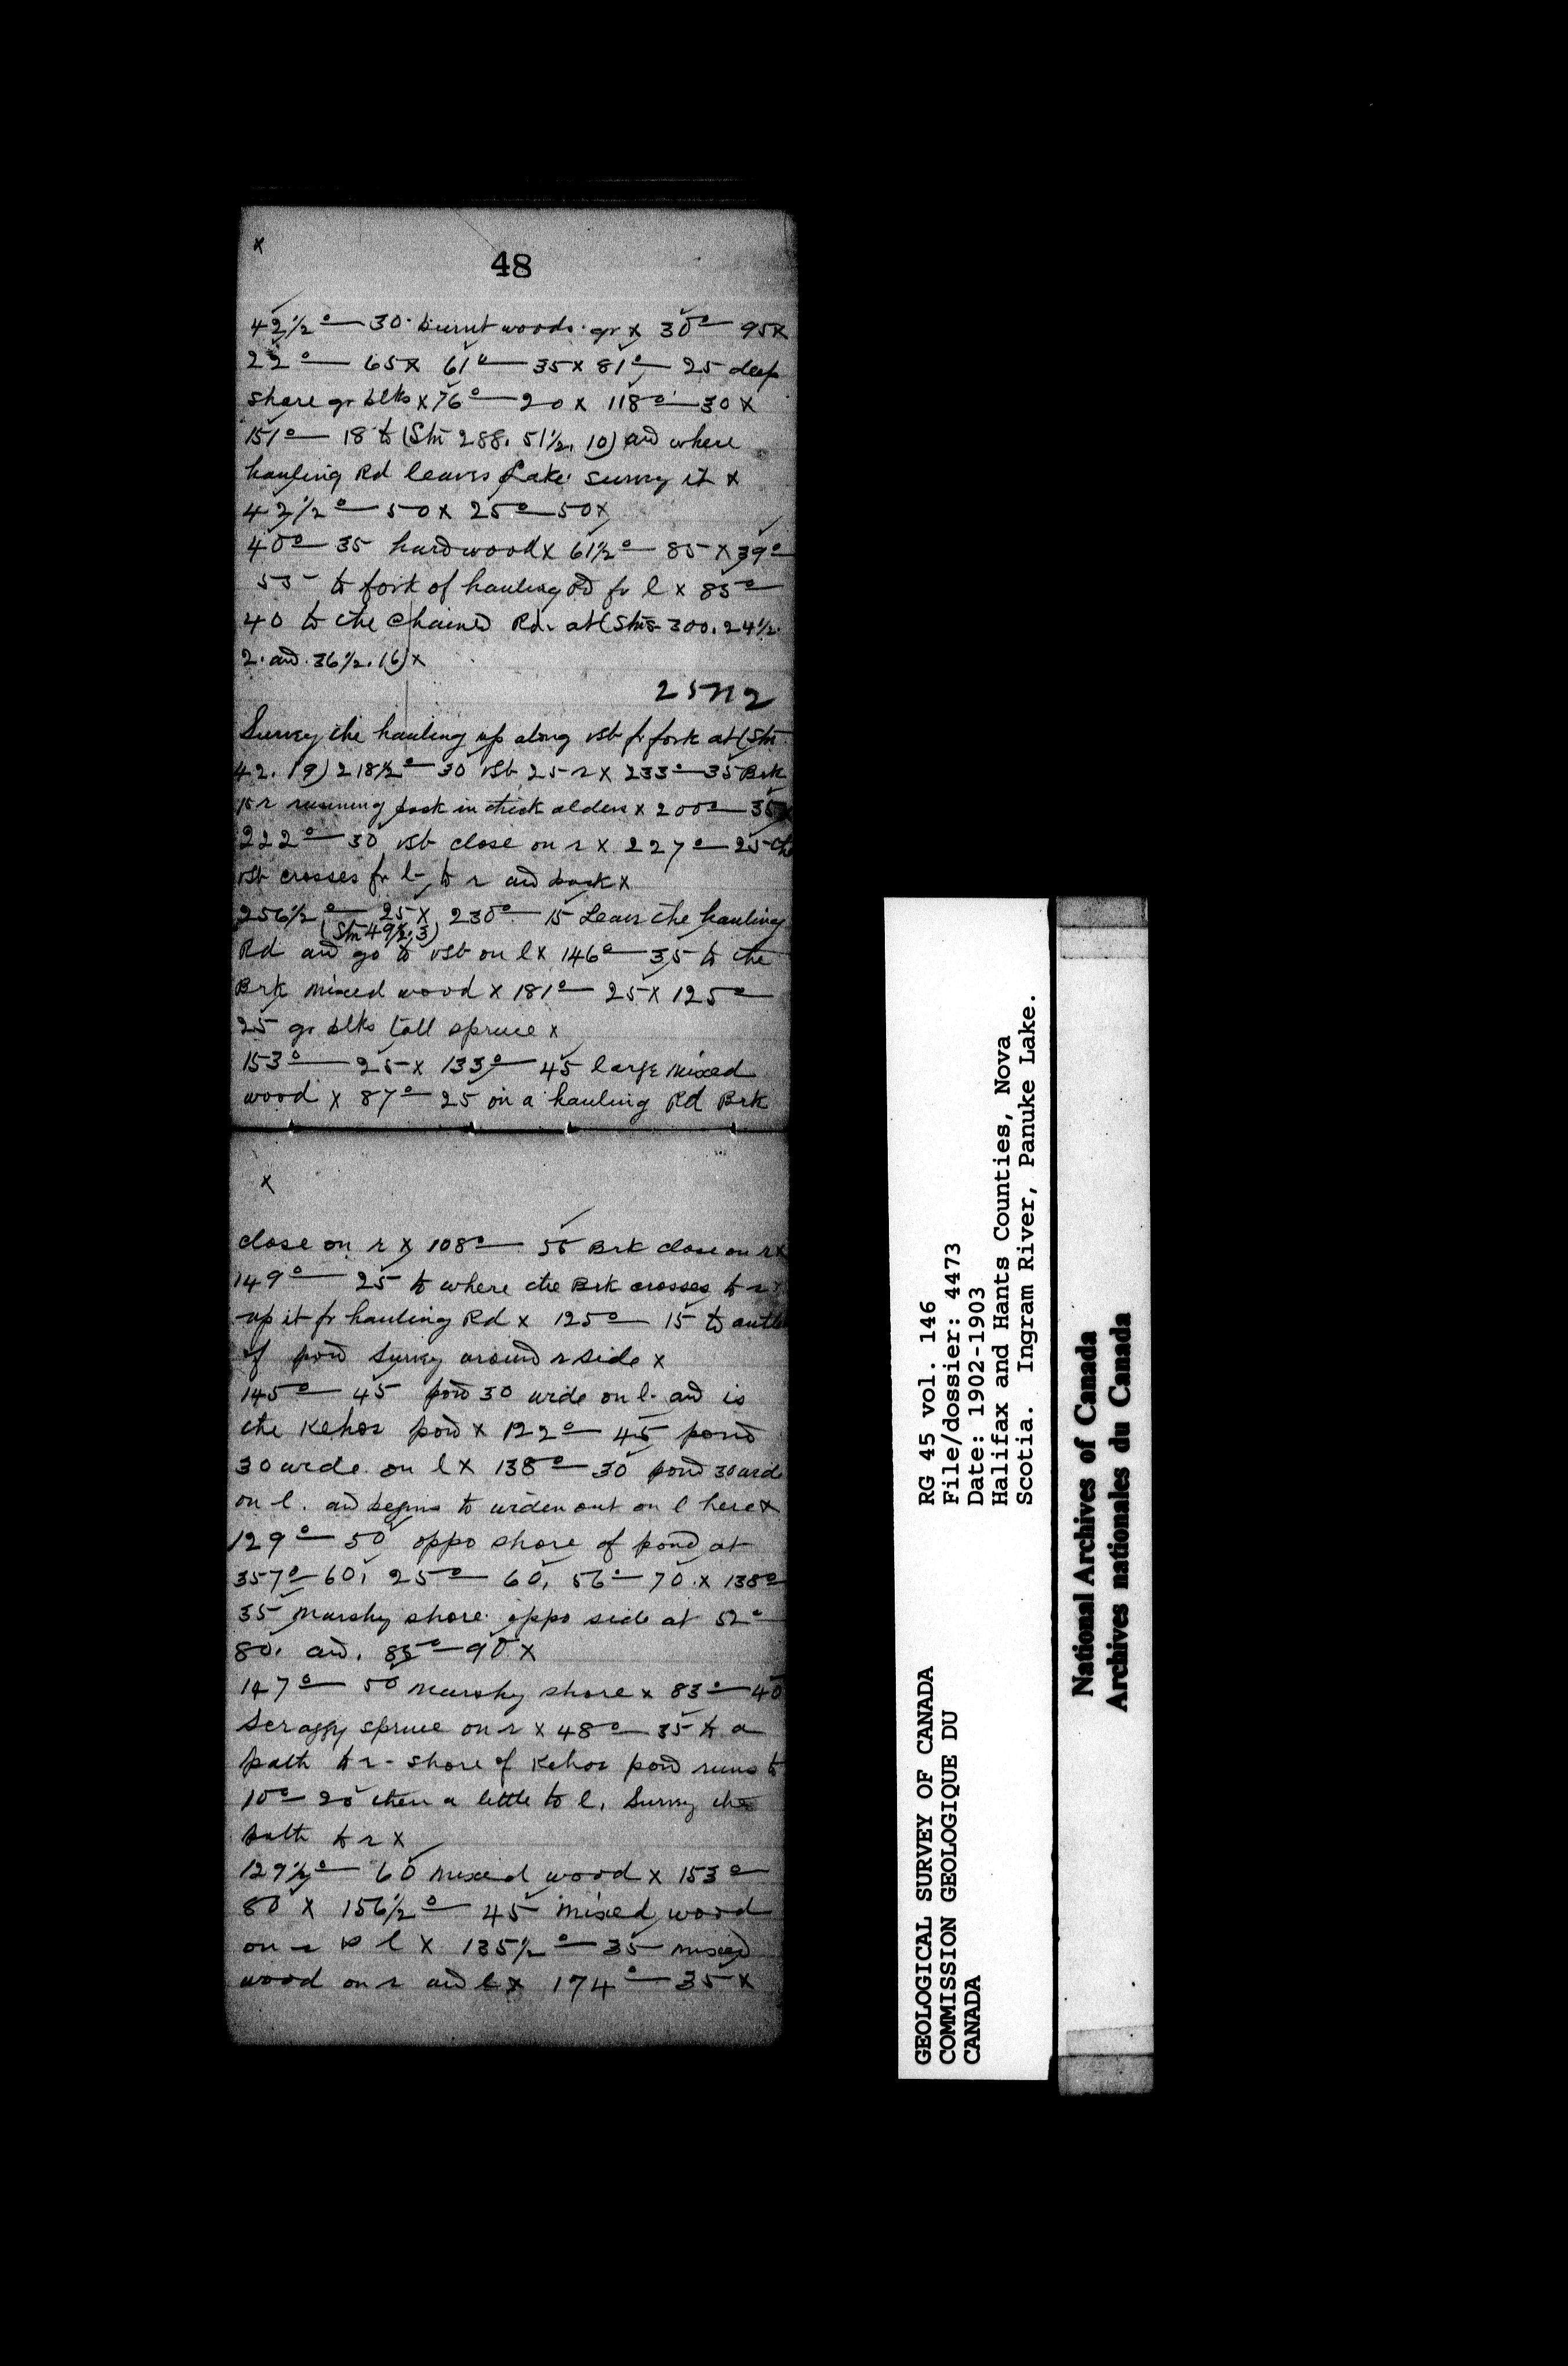 x
48
42½° — 30 burnt woods. gr x 30° — 95 x
22° — 65 x 61° — 35 x 81° — 25 deep
shore gr blks x 76° — 20 x 118° — 30 x
151° — 18 to (Stn 288. 51½. 10) and where
hauling Rd leaves Lake survey it x
42½° — 50 x 25° — 50 x
40° — 35 hardwood x 61½° — 85 x 39° —
55 to fork of hauling Rd fr l x 85° —
40 to the Chained Rd. at (Stns 300. 24½.
2. and 36½. 16) x
25712
Survey the hauling up along fr fork at (Stn
42. 19) 218½° — 30 25 r x 233° — 35 Brk
15 r running back in thick alders x 200° — 35 x
222° — 30 close on r x 227° — 25 the
crosses fr l to r and back x
256½° — 25 x 230° — 15 Leave the hauling
(Stn 49½. 3)
Rd and go to on l x 146° — 35 to the
Brk mixed wood x 181° — 25 x 125° —
25 gr blks tall spruce x
153° — 25 x 133° — 45 large mixed
wood x 87° — 25 on a hauling Rd Brk
x
close on r x 108° — 55 Brk close on r x
149° — 25 to where the Brk crosses to r x
up it fr hauling Rd x 125° — 15 to outlet
of pond Survey around r side x
145° — 45 pond 30 wide on l. and is
the Kehoe pond x 122° — 45 pond
30 wide on l x 138° — 30 pond 30 wide
on l. and begins to widen out on l here x
129° — 50 oppo shore of pond at
357° — 60, 25° — 60, 56° — 70. x 138° —
35 Marshy shore oppo side at 52° —
80. and. 85° — 90 x
147° — 50 Marshy shore x 83° — 40
Scraggy spruce on r x 48° — 35 to a
path to r - shore of Kehoe pond runs to
10° — 25 then a little to l. Survey the
path to r x
129½° — 60 mixed wood x 153° —
80 x 156½° — 45 mixed wood
on r & l x 135½° — 35 mixed
wood on r and l x 174° — 35 x
GEOLOGICAL SURVEY OF CANADA
COMMISSION GEOLOGIQUE DU
CANADA
RG 45 vol. 146
File/dossier: 4473
Date: 1902-1903
Halifax and Hants Counties, Nova
Scotia. Ingram River, Panuke Lake.
National Archives of Canada
Archives nationales du Canada